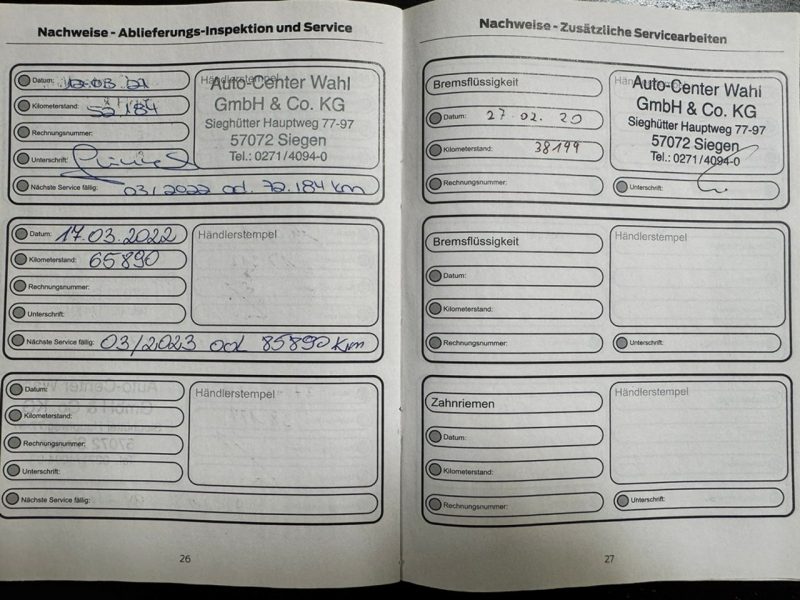 Nachweise - Ablieferungs-Inspektion und Service
Datum: 12.03.21
Kilometerstand: 52184
Rechnungsnummer:
Unterschrift:
Nächste Service fällig: 03/2022 od. 72.184 km
Händlerstempel
Auto-Center Wahl
GmbH & Co. KG
Sieghütter Hauptweg 77-97
57072 Siegen
Tel.: 0271/4094-0
Datum: 17.03.2022
Kilometerstand: 65890
Rechnungsnummer:
Unterschrift:
Nächste Service fällig: 03/2023 od 85890 Km
Händlerstempel
Datum:
Kilometerstand:
Rechnungsnummer:
Unterschrift:
Nächste Service fällig:
Händlerstempel
26
Nachweise - Zusätzliche Servicearbeiten
Bremsflüssigkeit
Datum: 27.02.20
Kilometerstand: 38199
Rechnungsnummer:
Auto-Center Wahl
GmbH & Co. KG
Sieghütter Hauptweg 77-97
57072 Siegen
Tel.: 0271/4094-0
Unterschrift:
Bremsflüssigkeit
Datum:
Kilometerstand:
Rechnungsnummer:
Händlerstempel
Unterschrift:
Zahnriemen
Datum:
Kilometerstand:
Rechnungsnummer:
Händlerstempel
Unterschrift:
27